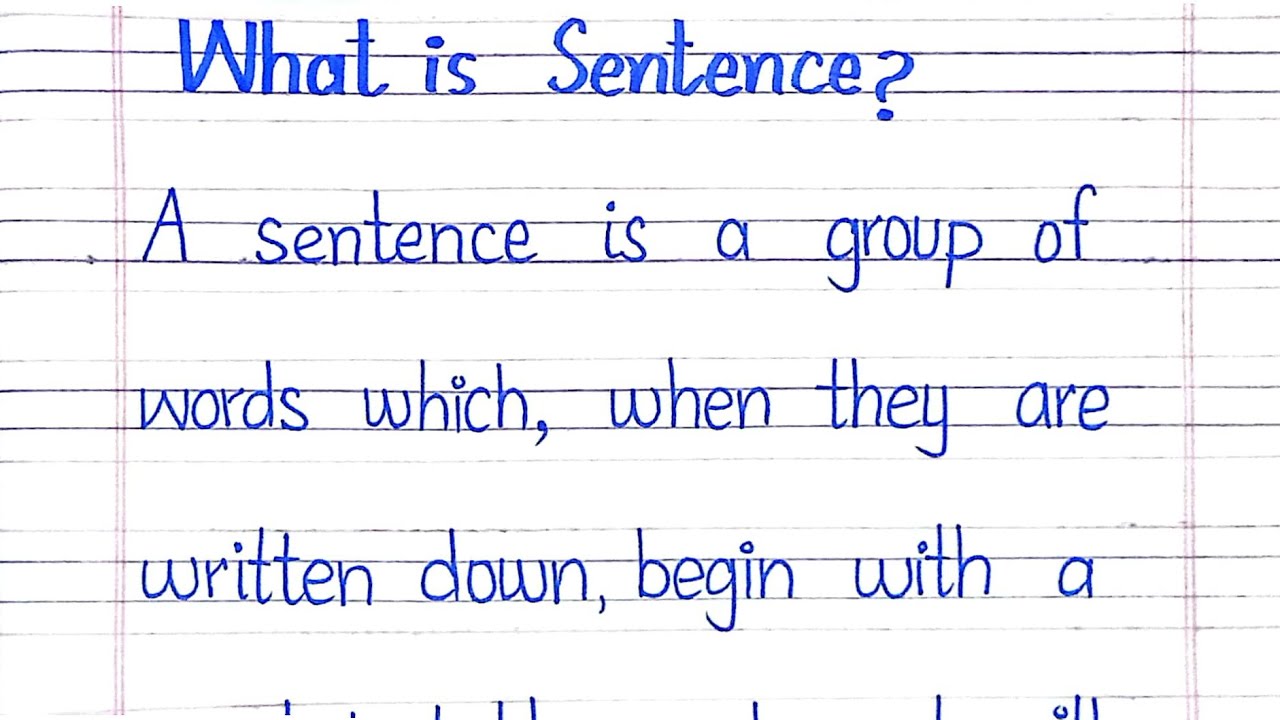 What is Sentence?
A sentence is a group of
words which, when they are
written down, begin with a